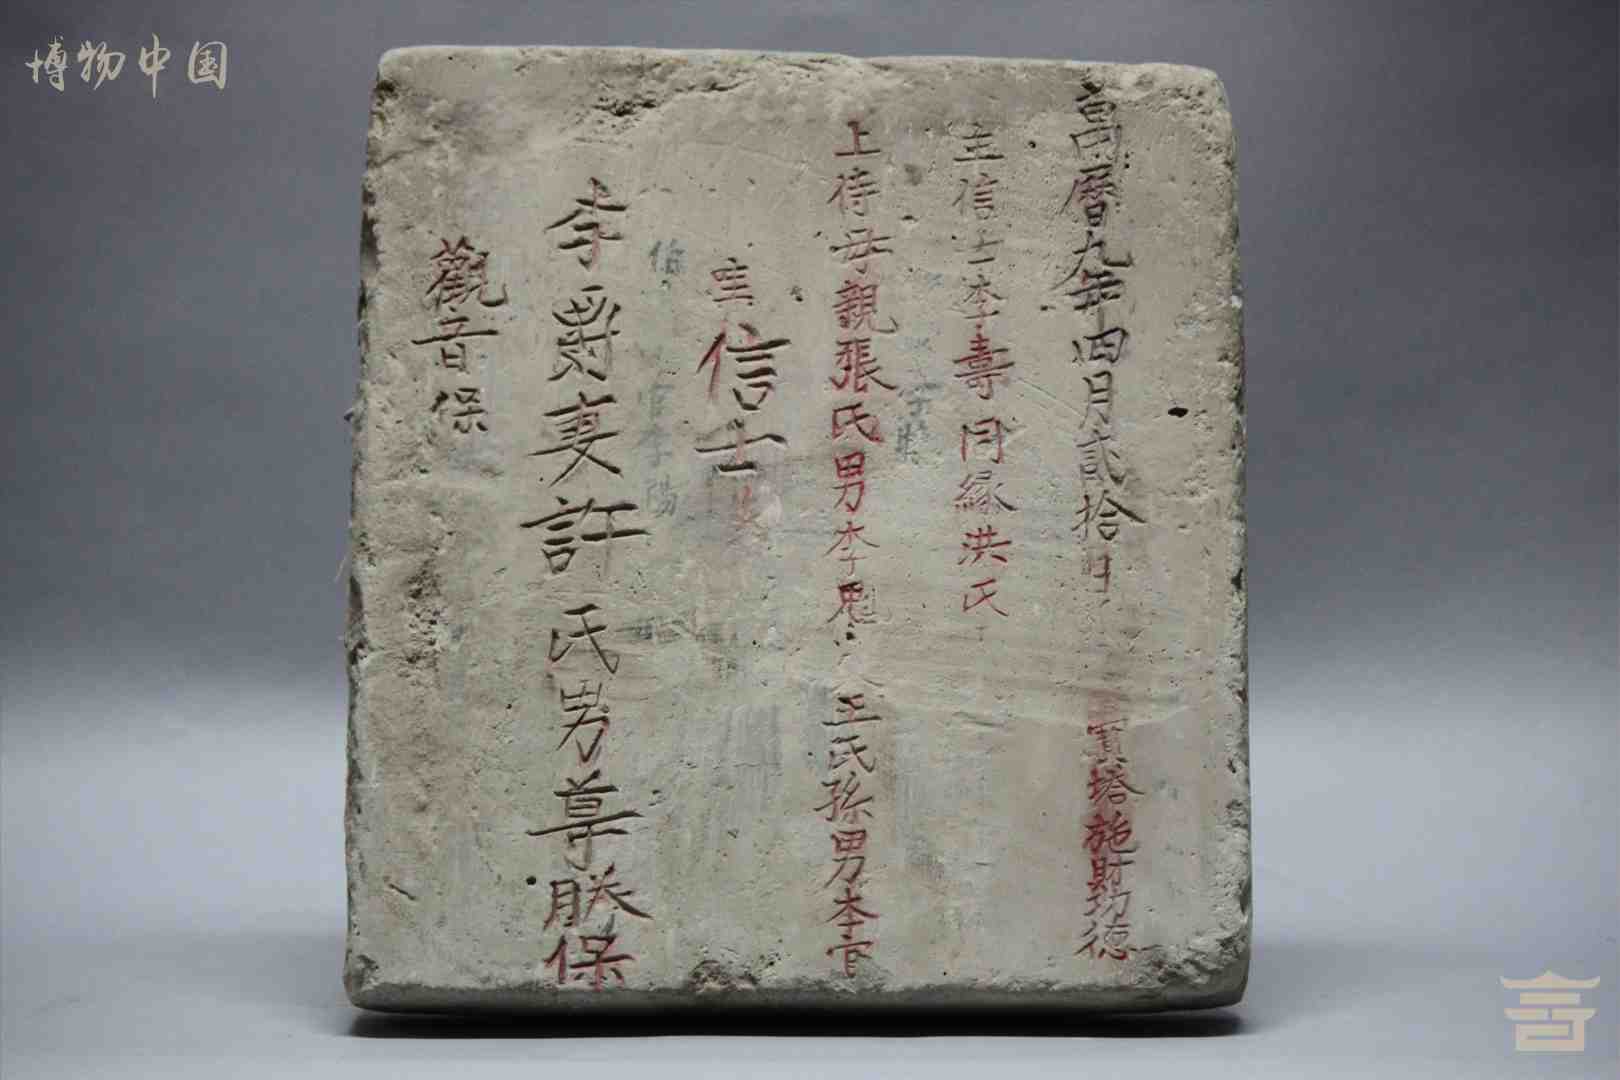 博物中国
萬曆九年四月貳拾日 寶塔施財功德
主信士李壽同緣洪氏
上侍母親張氏男李魁 王氏孫男李官
信士
李爵妻許氏男尊勝保
觀音保